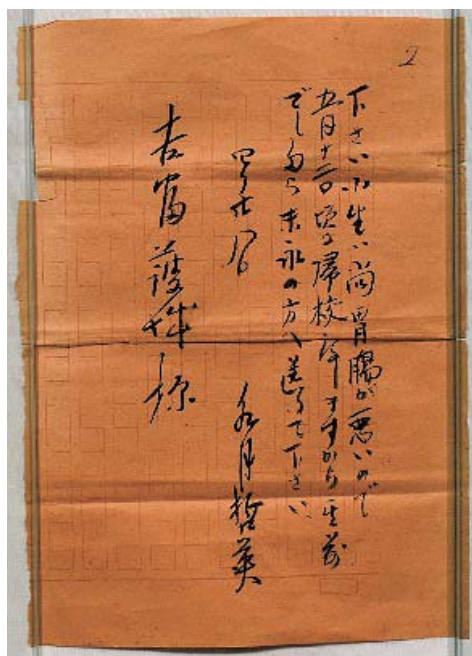 2
下さい 小生ハ尚胃腸が悪いので
五月十一日頃の帰校となりますから其前
でしたら末永の方へ送って下さい
四月廿八日
秋月哲英
吉富護様